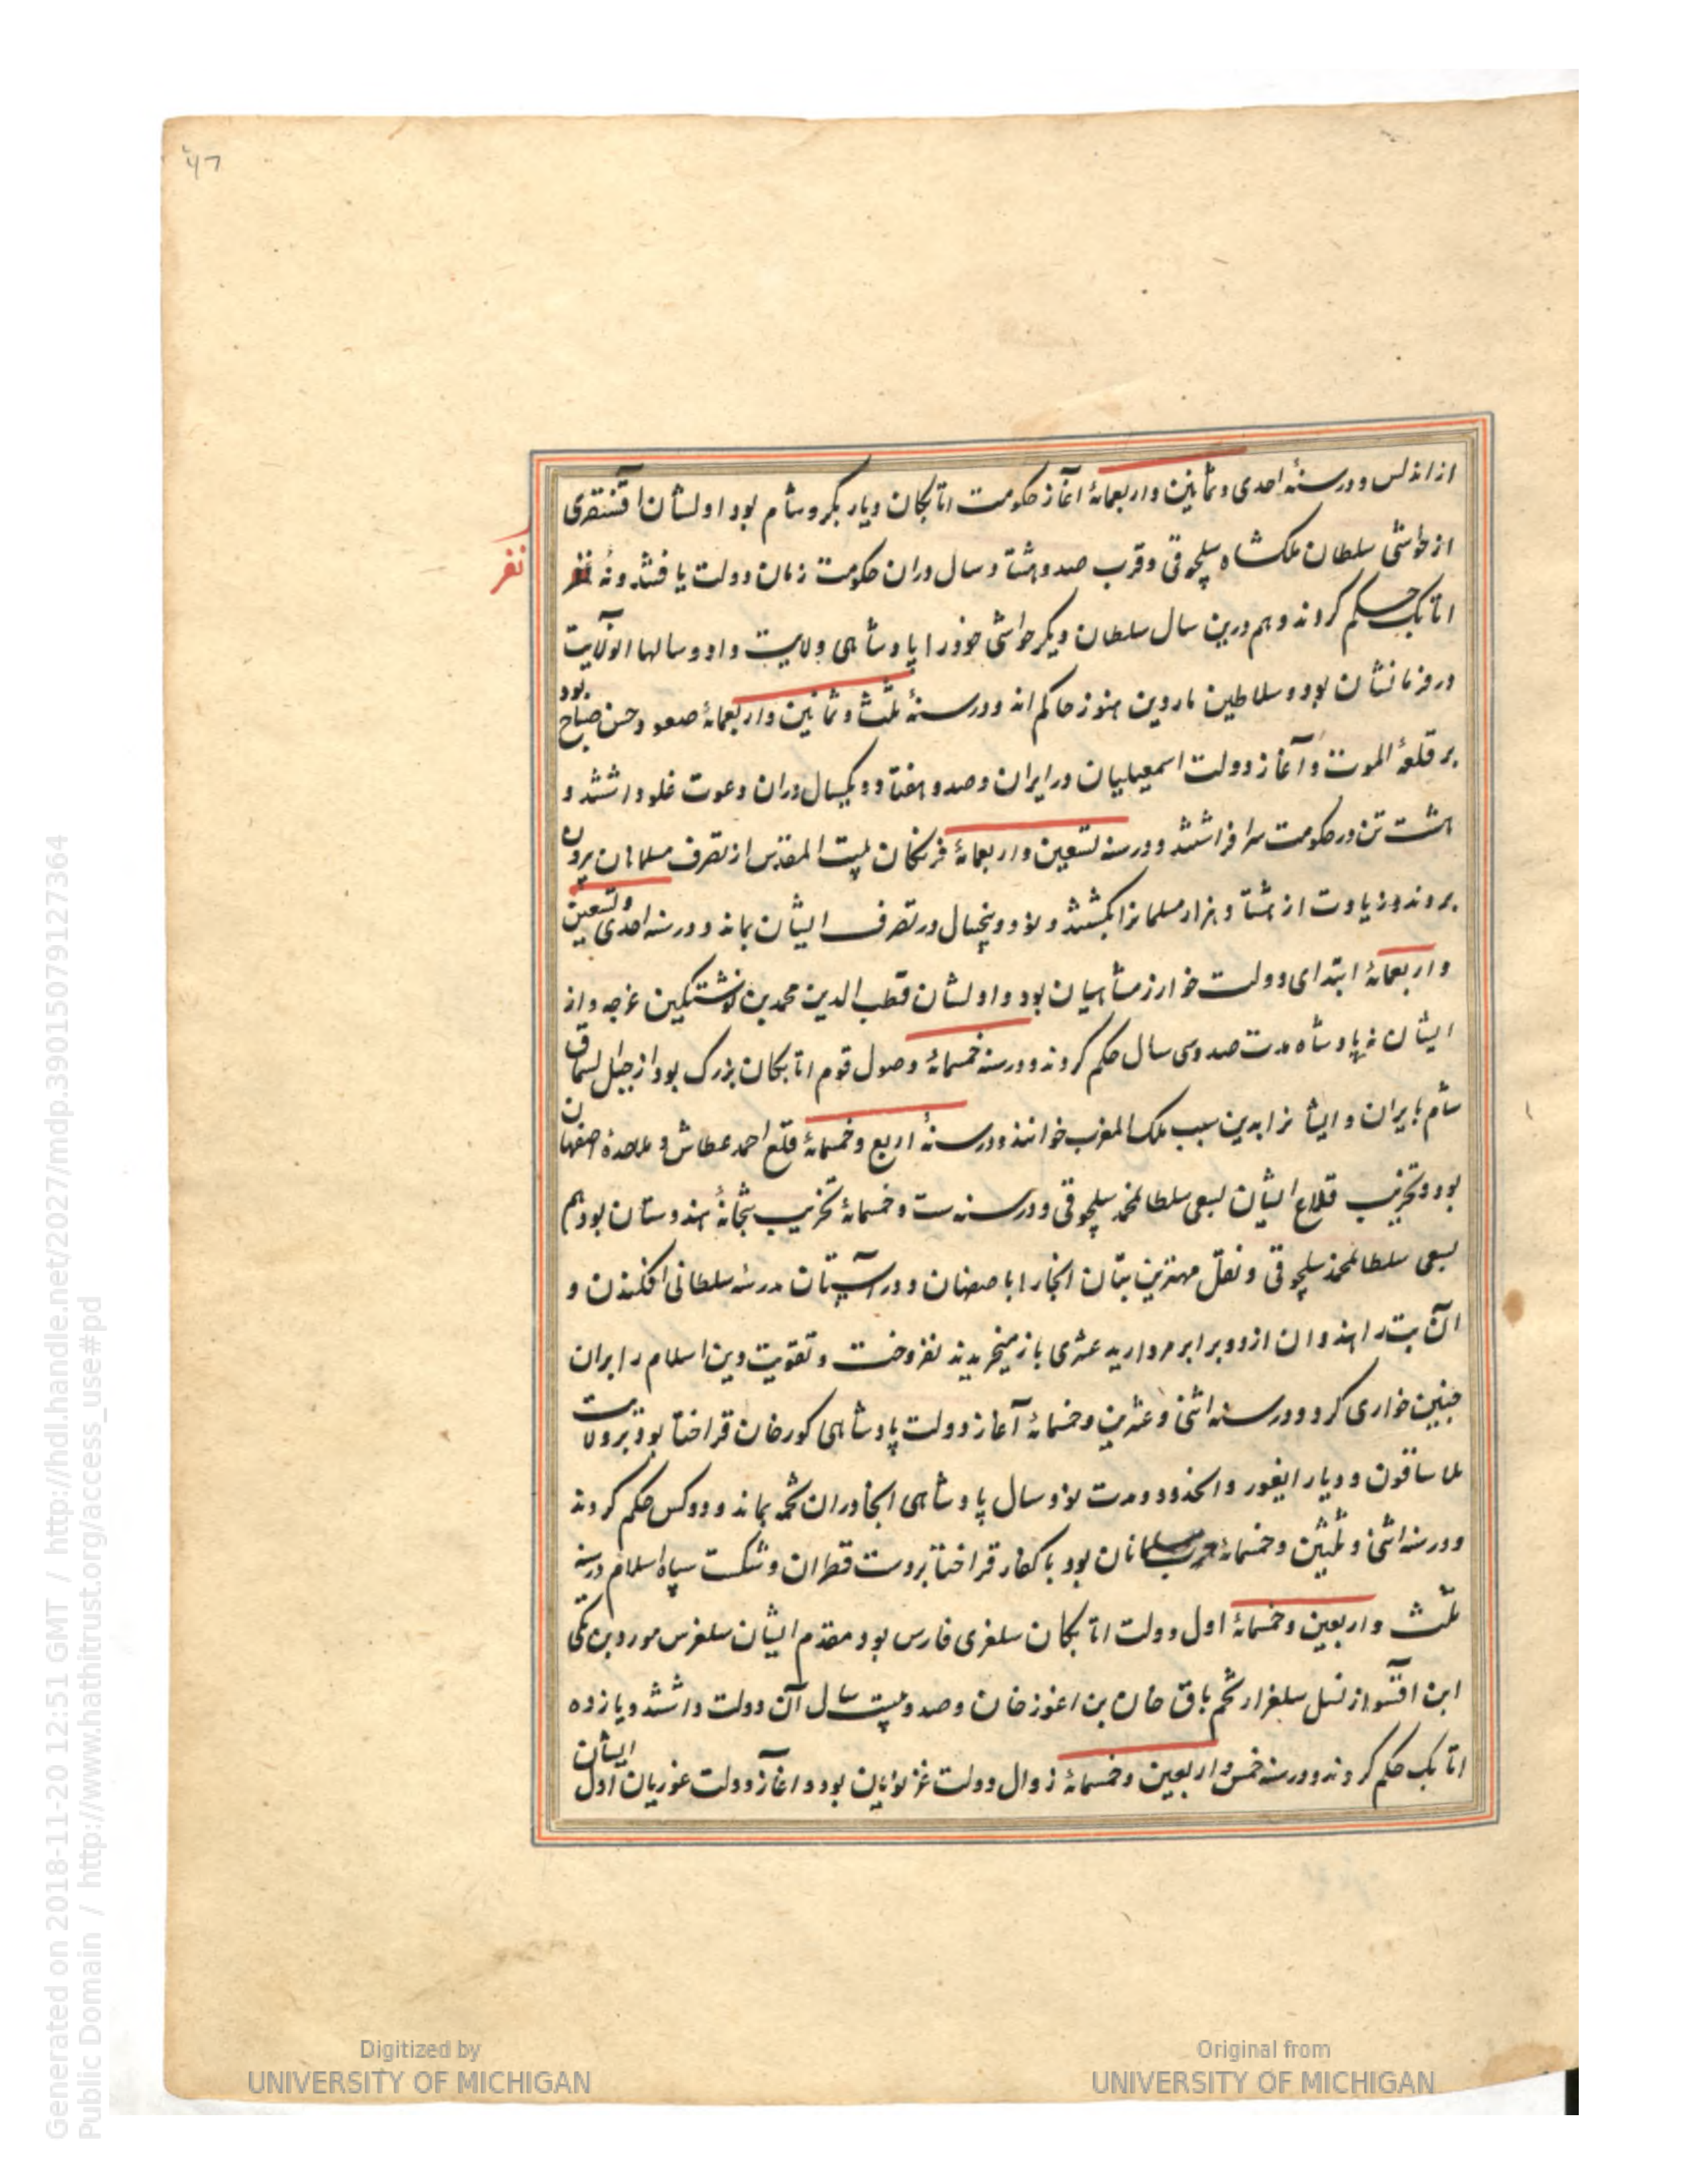 ۴۷
از اندلس و در سنهٔ احدی و ثمانین و اربعمائهٔ آغاز حکومت اتابکان دیار بکر و شام بود اولشان اقسنقری
از حواشی سلطان ملکشاه سلجوقی و قرب صد و هشتاد سال دران حکومت زمان دولت یافتند و نُه نفر
نفر
اتابک حکم کردند و هم درین سال سلطان دیگر حواشی خود را پادشاهی ولایت داد و سالها آنولایت
در فرمانشان بود و سلاطین ماردین هنوز حاکم اند و در سنهٔ ثلث و ثمانین و اربعمائهٔ صعود حسن صباح بود
بر قلعهٔ الموت و آغاز دولت اسمعیلیان در ایران و صد و هفتاد و یکسال دران دعوت غلو داشتند و
هشت تن در حکومت سر افراشتند و در سنه تسعین و اربعمائهٔ فرنکان بیت المقدس از تصرف مسلمانان برون
بردند و زیادت از هشتاد هزار مسلمانرا بکشتند و نود و پنجسال در تصرف ایشان بماند و در سنه احدی و تسعین
و اربعمائهٔ ابتدای دولت خوارزمشاهیان بود و اولشان قطب الدین محمد بن نوشتکین غرجه و از
ایشان نه پادشاه مدت صد و سی سال حکم کردند و در سنه خمسمائهٔ وصول قوم اتابکان بزرک بود از جبل السماق
شام بایران و ایشانرا بدین سبب ملک المغرب خوانند و در سنهٔ اربع و خمسمائهٔ قلع احمد عطاش و ملاحدهٔ اصفهان
بود و تخریب قلاع ایشان بسعی سلطان محمد سلجوقی و در سنه ست و خمسمائهٔ تخریب بتخانهٔ هندوستان بود هم
بسعی سلطان محمد سلجوقی و نقل مهترین بتان انجا را با صفهان و در آستان مدرسه سلطانی افکندن و
آن بت را هندوان از دو برابر مروارید عشری باز میخریدند نفروخت و تقویت دین اسلام را بران
چنین خواری کرد و در سنه اثنی و عشرین و خمسمائهٔ آغاز دولت پادشاهی کورخان قراختا بود بر ولایت
بلاساقون و دیار ایغور و مدت نود سال پادشاهی انجا دران تخمه بماند و دو کس حکم کردند
و در سنه اثنی و ثلثین و خمسمائهٔ حرب مسلمانان بود با کفار قراختا بدست قطران و شکست سپاه اسلام در سنه
ثلث و اربعین و خمسمائهٔ اول دولت اتابکان سلغری فارس بود مقدم ایشان سلغرس مودود بن تکی
ابن اقسو از نسل سلغر از تخم باق خان بن اغوز خان و صد و بیست سال آن دولت داشتند و یازده
اتابک حکم کردند و در سنه خمس و اربعین و خمسمائهٔ زوال دولت غزنویان بود و آغاز دولت غوریان اول ایشان
Digitized by
UNIVERSITY OF MICHIGAN
Original from
UNIVERSITY OF MICHIGAN
Generated on 2018-11-20 12:51 GMT / http://hdl.handle.net/2027/mdp.39015079127364
Public Domain / http://www.hathitrust.org/access_use#pd